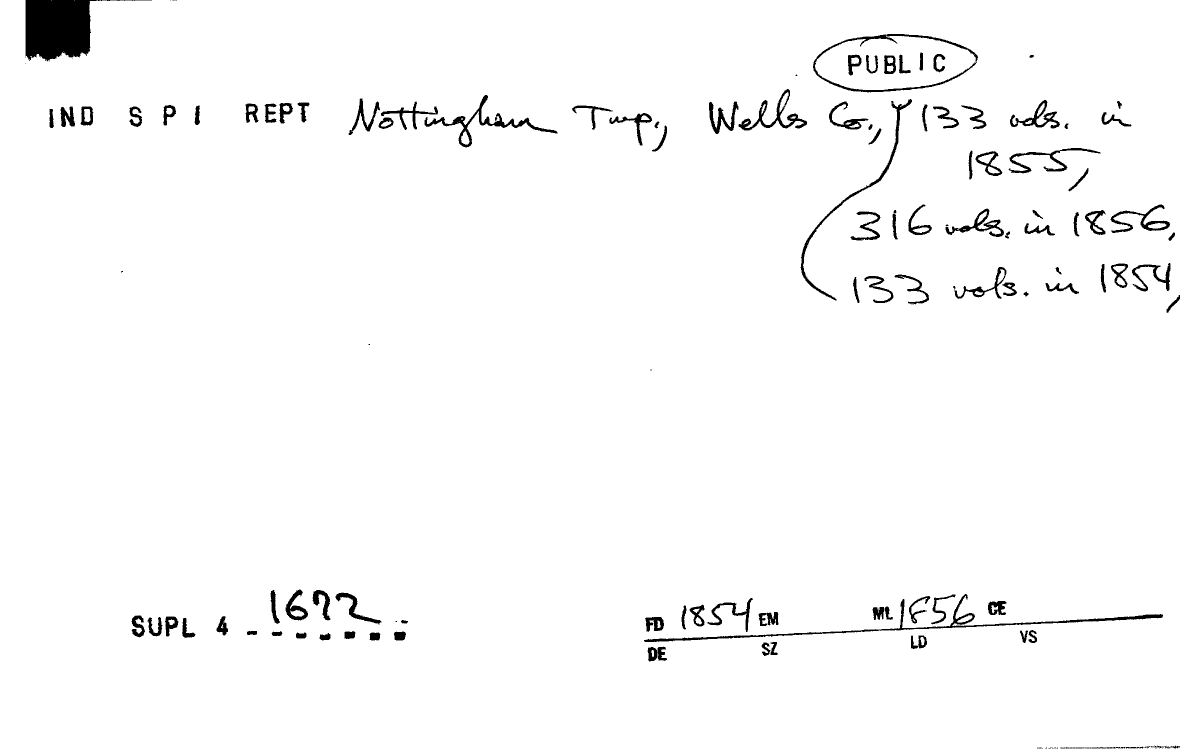 PUBLIC
IND S P I REPT Nottingham Twp., Wells Co., 133 vols. in
1855,
316 vols. in 1856,
133 vols. in 1854,
SUPL 4 1672
FD 1854 EM ML 1856 CE
DE SZ LD VS